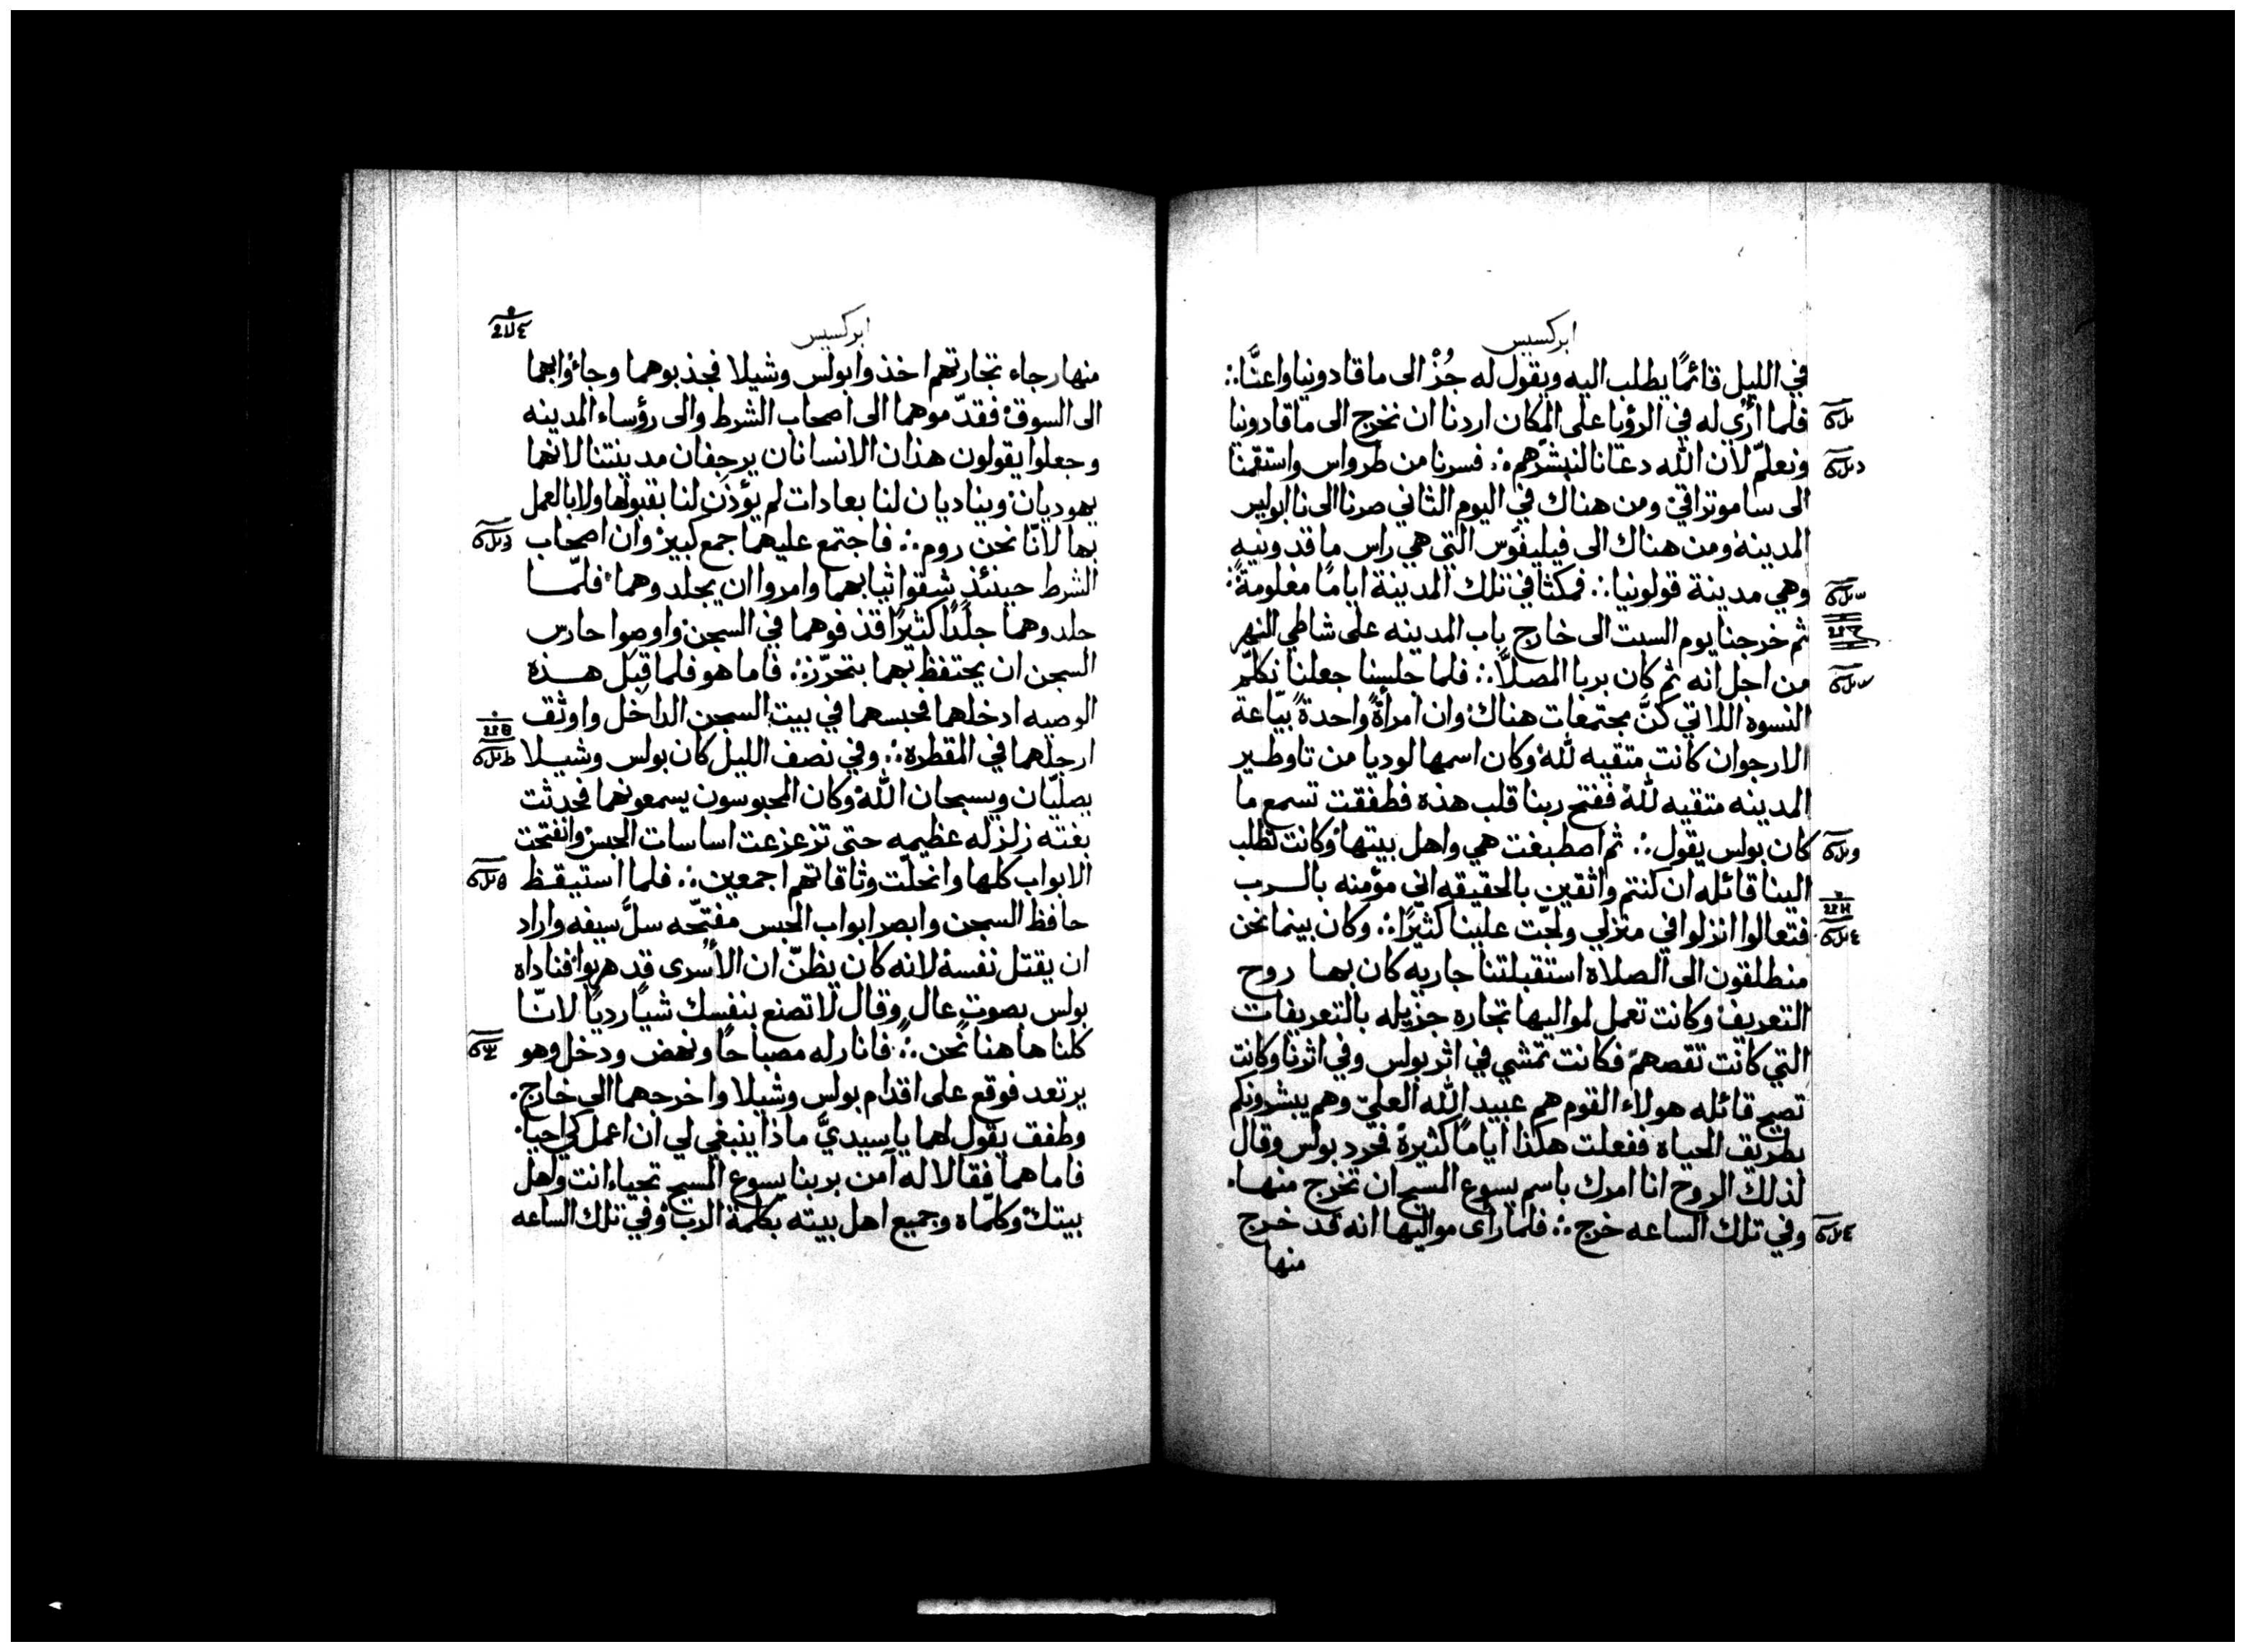 ابركسيس
في الليل قائمًا يطلب اليه ويقول له جُزْ الى ماقادونيا واعنَّا ∴
فلما اُرْي له في الرؤيا على المكان اردنا ان نخرج الى ماقادونيا
ونعلم لان الله دعانا لنبشرهم ∴ فسرنا من طرواس واستقمنا
الى ساموتراقي ومن هناك في اليوم الثاني صرنا الى نابوليس
المدينة ومن هناك الى فيليفوس التي هي راس ماقدونيه
وهي مدينة قولونيا ∴ فمكثنا في تلك المدينة ايامًا معلومةً ∴
ثم خرجنا يوم السبت الى خارج باب المدينه على شاطي النهر
من اجل انه ثم كان يريا المصلَّا ∴ فلما جلسنا جعلنا نكلّم
النسوه اللاتي كنَّ مجتمعات هناك وان امرأةً واحدةً بيّاعة
الارجوان كانت متقيه لله وكان اسمها لوديا من تاوطير
المدينه متقيه لله ففتح ربنا قلب هذه فطفقت تسمع ما
كان بولس يقول ∴ ثم اصطبغت هي واهل بيتها وكانت تطلب
الينا قائله ان كنتم واثقين بالحقيقه اني مؤمنه بالرب
فتعالوا انزلوا في منزلي ولجّت علينا كثيرًا ∴ وكان بينما نحن
منطلقون الى الصلاة استقبلتنا جاريه كان بها روح
التعريف وكانت تعمل لمواليها تجاره جزيله بالتعريفات
التي كانت تقصهمّ فكانت تمشي في اثر بولس وفي اثرنا وكانت
تصيح قائله هولاء القوم هم عبيد الله العليّ وهم يبشرونكم
بطريق الحياه ففعلت هكذا ايامًا كثيرةً فحرد بولس وقال
لذلك الروح انا امرك باسم يسوع المسيح ان تخرج منها
وفي تلك الساعه خرج ∴ فلما رأى مواليها انه قد خرج
منها
ابركسيس
منها رجاء تجارتهم اخذوا بولس وشيلا فجذبوهما وجاؤا بهما
الى السوق فقدّموهما الى اصحاب الشرط والى رؤساء المدينه
وجعلوا يقولون هذان الانسانان يرجفان مدينتنا لانهما
يهوديان ويناديان لنا بعادات لم يؤذن لنا بقبولها ولا بالعمل
بها لانّا نحن روم ∴ فاجتمع عليهما جمع كبير وان اصحاب
الشرط حينئذٍ شقوا ثيابهما وامروا ان يجلدوهما فلمّا
جلدوهما جلدًا كثيرًا قذفوهما في السجن واوصوا حارس
السجن ان يحتفظ بهما بتحرّز ∴ فاما هو فلما قبل هذه
الوصيه ادخلهما فحبسهما في بيت السجن الداخل واوثق
ارجلهما في المقطره ∴ وفي نصف الليل كان بولس وشيلا
يصلّيان ويسبحان الله وكان المحبوسون يسمعونهما فحدثت
بغتة زلزله عظيمه حتى تزعزعت اساسات الحبس وانفتحت
الابواب كلها وانحلّت وثاقاتهم اجمعين ∴ فلما استيقظ
حافظ السجن وابصر ابواب الحبس مفتّحه سلّ سيفه واراد
ان يقتل نفسه لانه كان يظنّ ان الأسرى قد هربوا فناداه
بولس بصوت عالٍ وقال لا تصنع بنفسك شيًا رديًا لانّا
كلنا هاهنا نحن ∴ فانار له مصباحًا ونهض ودخل وهو
يرتعد فوقع على اقدام بولس وشيلا واخرجهما الى خارج
وطفق يقول لهما يا سيديَّ ماذا ينبغي لي ان اعمل كي احيا
فاما هما فقالا له آمن بربنا يسوع المسيح تحيا انت واهل
بيتك وكلّماه وجميع اهل بيته بكلمة الرب وفي تلك الساعه